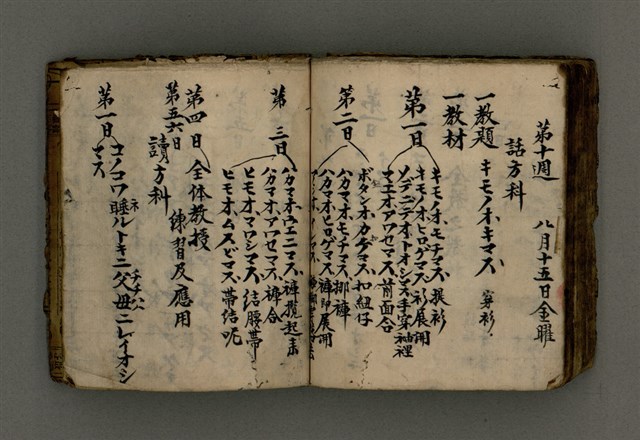 第十週 八月十五日金曜
話方科
一教題 キモノオ、キマス、 穿衫.
一教材
第一日 キモノオ、モチマス、提衫
キモノオ、ヒロゲマス、衫展開
ソデニテオトオシマス手穿袖裡
マエオアワセマス、前面合
第二日 ボタンオ、カケマス、扣紐仔
ハカマオ、モチマス、挪褲
ハカマオヒロゲマス、褲即展開
第三日 ハカマオ、ウエニマス、褲攬起來
ハカマオ、アワセマス、褲合
ヒモオ、マワシマス、結腰帶
ヒモオ、ムスビマス、帶結呢
第四日 全体教授
第五六日 練習及應用
讀方科
第一日 コノコワ睡ルトキニ父母ニレイオシ
マス